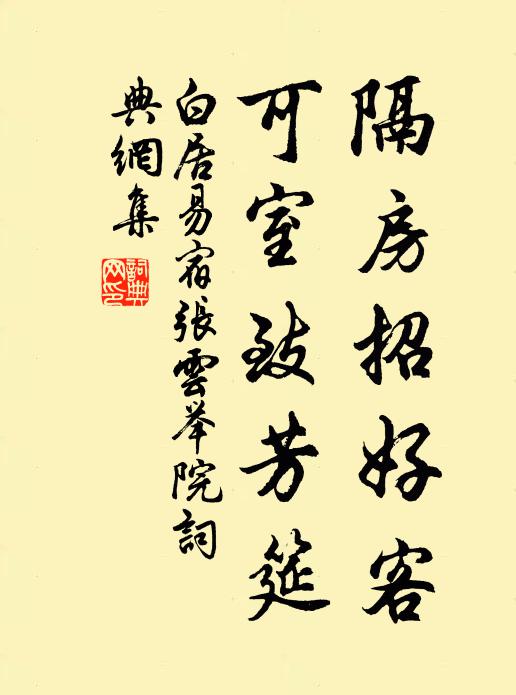 隔房招好客
可室致芳筵
白居易宿張雲举院詞
典網集
詞典
网印